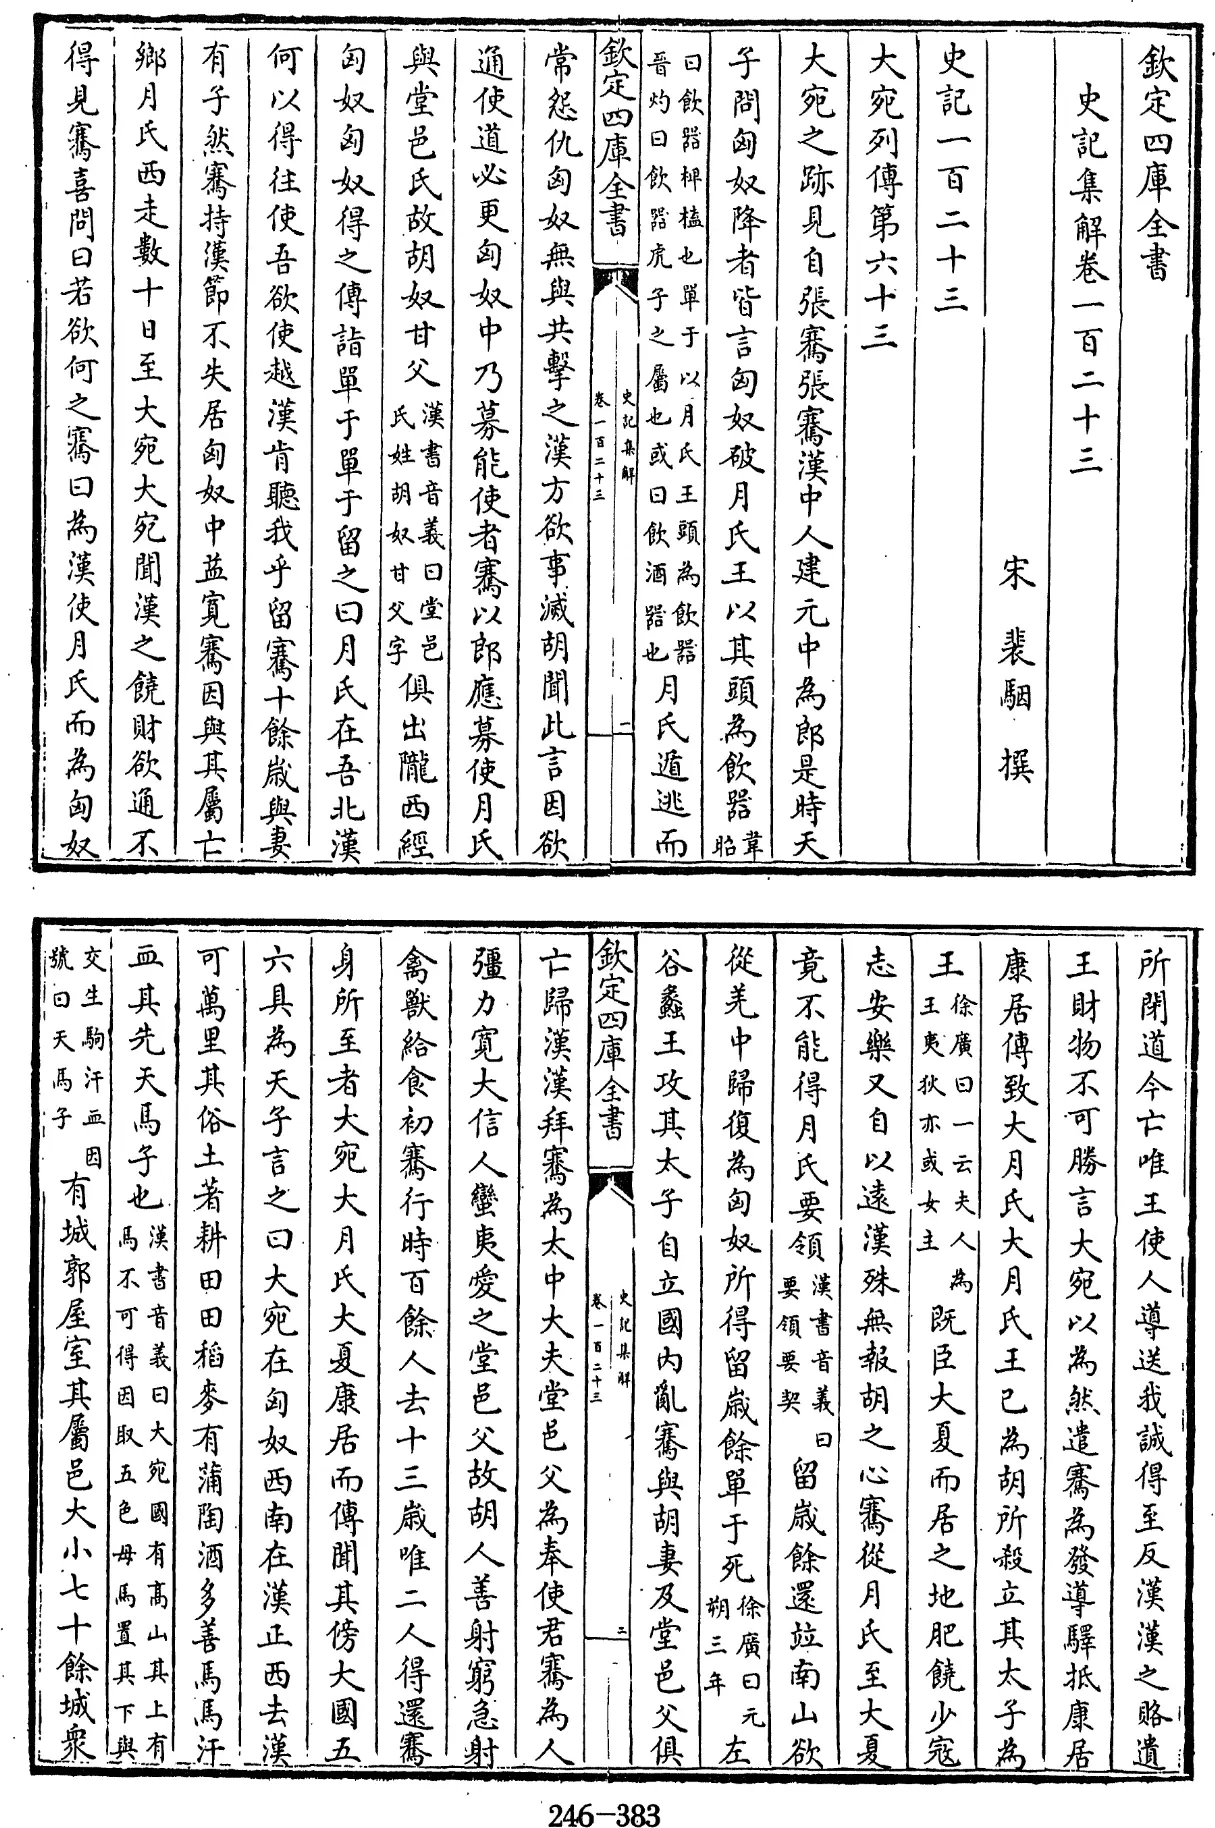 欽定四庫全書
史記集解卷一百二十三
宋 裴駰 撰
史記一百二十三
大宛列傳第六十三
大宛之跡見自張騫張騫漢中人建元中為郎是時天
子問匈奴降者皆言匈奴破月氏王以其頭為飲器韋昭
曰飲器椑榼也單于以月氏王頭為飲器
晉灼曰飲器虎子之屬也或曰飲酒器也月氏遁逃而
欽定四庫全書
史記集解
卷一百二十三
一
常怨仇匈奴無與共擊之漢方欲事滅胡聞此言因欲
通使道必更匈奴中乃募能使者騫以郎應募使月氏
與堂邑氏故胡奴甘父漢書音義曰堂邑氏姓胡奴甘父字俱出隴西經
匈奴匈奴得之傳詣單于單于留之曰月氏在吾北漢
何以得往使吾欲使越漢肯聽我乎留騫十餘歲與妻
有子然騫持漢節不失居匈奴中益寛騫因與其屬亡
鄉月氏西走數十日至大宛大宛聞漢之饒財欲通不
得見騫喜問曰若欲何之騫曰為漢使月氏而為匈奴
所閉道今亡唯王使人導送我誠得至反漢漢之賂遺
王財物不可勝言大宛以為然遣騫為發導驛抵康居
康居傳致大月氏大月氏王已為胡所殺立其太子為
王徐廣曰一云夫人為王夷狄亦或女主既臣大夏而居之地肥饒少寇
志安樂又自以遠漢殊無報胡之心騫從月氏至大夏
竟不能得月氏要領漢書音義曰要領要契留歲餘還竝南山欲
從羌中歸復為匈奴所得留歲餘單于死徐廣曰元朔三年左
谷蠡王攻其太子自立國内亂騫與胡妻及堂邑父俱
欽定四庫全書
史記集解
卷一百二十三
二
亡歸漢漢拜騫為太中大夫堂邑父為奉使君騫為人
彊力寛大信人蠻夷愛之堂邑父故胡人善射窮急射
禽獸給食初騫行時百餘人去十三歲唯二人得還騫
身所至者大宛大月氏大夏康居而傳聞其傍大國五
六具為天子言之曰大宛在匈奴西南在漢正西去漢
可萬里其俗土著耕田田稻麥有蒲陶酒多善馬馬汗
血其先天馬子也漢書音義曰大宛國有髙山其上有馬不可得因取五色母馬置其下與
交生駒汗血因號曰天馬子有城郭屋室其屬邑大小七十餘城衆
246-383